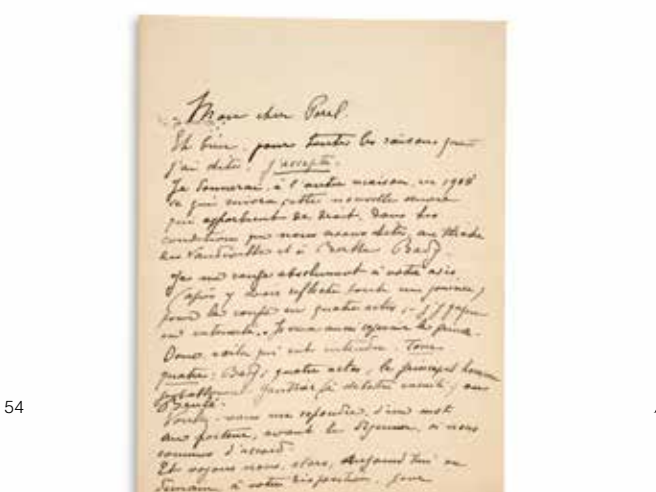 Mon cher Porel.
Eh bien, pour toutes les raisons que
j'ai dites, j'accepte.
Je donnerai à l'autre maison, en 1908
ce qui suivra cette nouvelle œuvre
qui appartient de droit, dans les
conditions que nous avons dites, au théâtre
du Vaudeville et à Berthe Bady.
Je me range absolument à votre avis
(après y avoir réfléchi toute une journée)
pour la coupe en quatre actes,
Donc voilà qui est entendu. Tous
quatre, Bady, quatre actes, le principal homme
Beauté.
Voulez-vous me répondre d'un mot
au porteur, avant le déjeuner, si nous
sommes d'accord.
Et voyons nous, alors, aujourd'hui ou
demain à votre disposition, pour
54